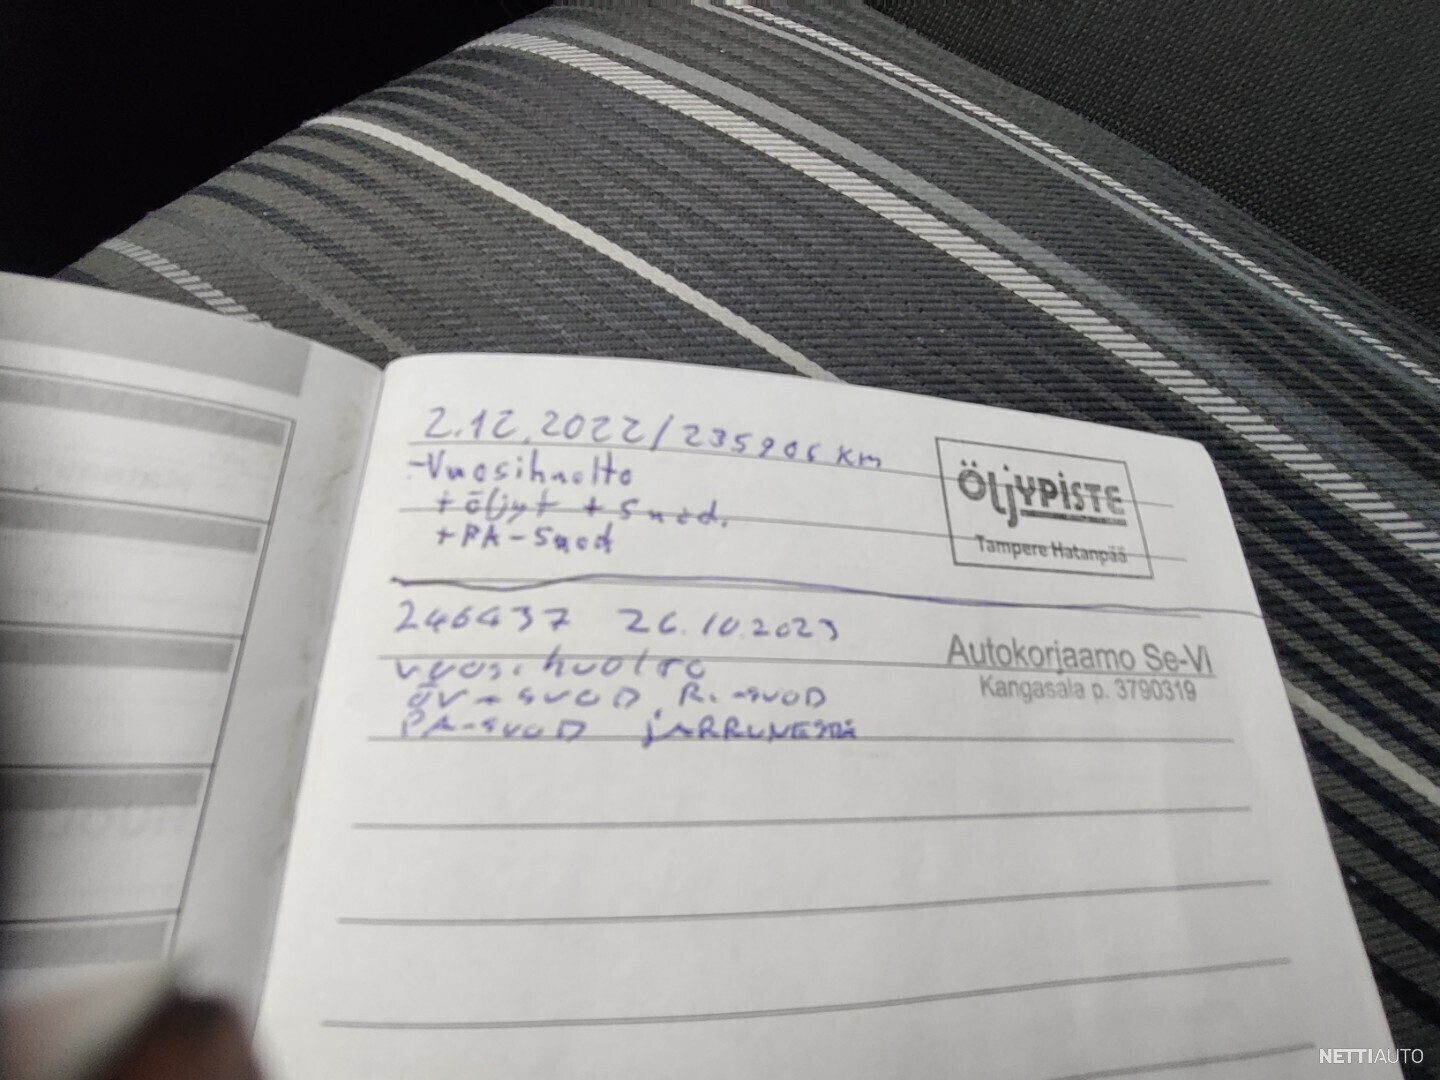 2.12.2022/235906 km
-Vuosihuolto
+ öljyt + Suod.
+PA-Suod
ÖLJYPISTE
Tampere Hatanpää
246437 26.10.2023
vuosihuolto
ÖV+SUOD R.-SUOD
PA-SUOD JARRUNESTE
Autokorjaamo Se-Vi
Kangasala p. 3790319
NETTIAUTO